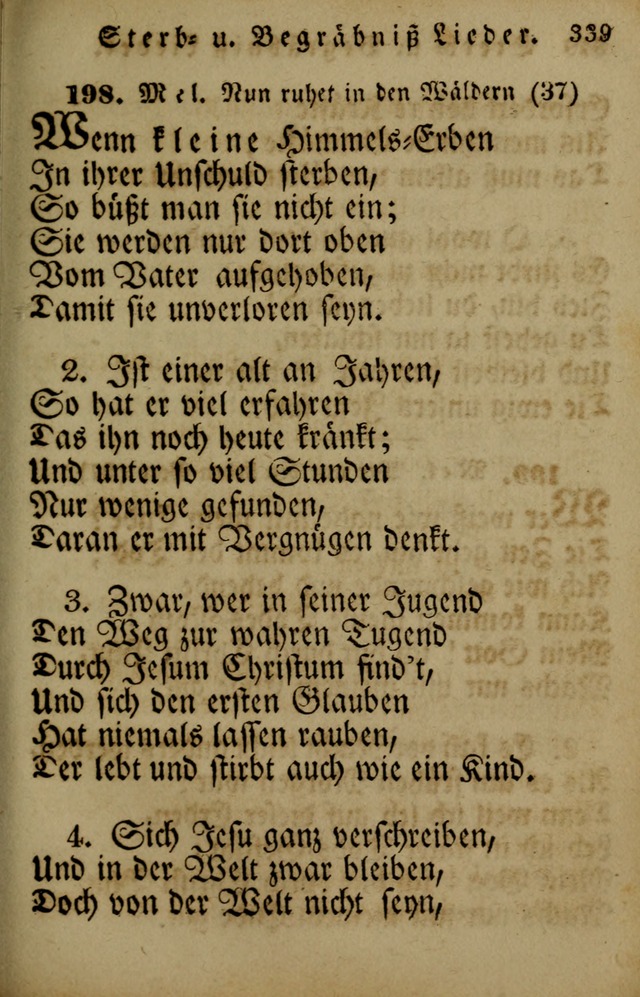 Sterb- u. Begräbniß Lieder. 339
198. Mel. Nun ruhet in den Wäldern (37)
Wenn kleine Himmels-Erben
In ihrer Unschuld sterben,
So büßt man sie nicht ein;
Sie werden nur dort oben
Vom Vater aufgehoben,
Damit sie unverloren seyn.
2. Ist einer alt an Jahren,
So hat er viel erfahren
Das ihn noch heute kränkt;
Und unter so viel Stunden
Nur wenige gefunden,
Daran er mit Vergnügen denkt.
3. Zwar, wer in seiner Jugend
Den Weg zur wahren Tugend
Durch Jesum Christum find't,
Und sich den ersten Glauben
Hat niemals lassen rauben,
Der lebt und stirbt auch wie ein Kind.
4. Sich Jesu ganz verschreiben,
Und in der Welt zwar bleiben,
Doch von der Welt nicht seyn,